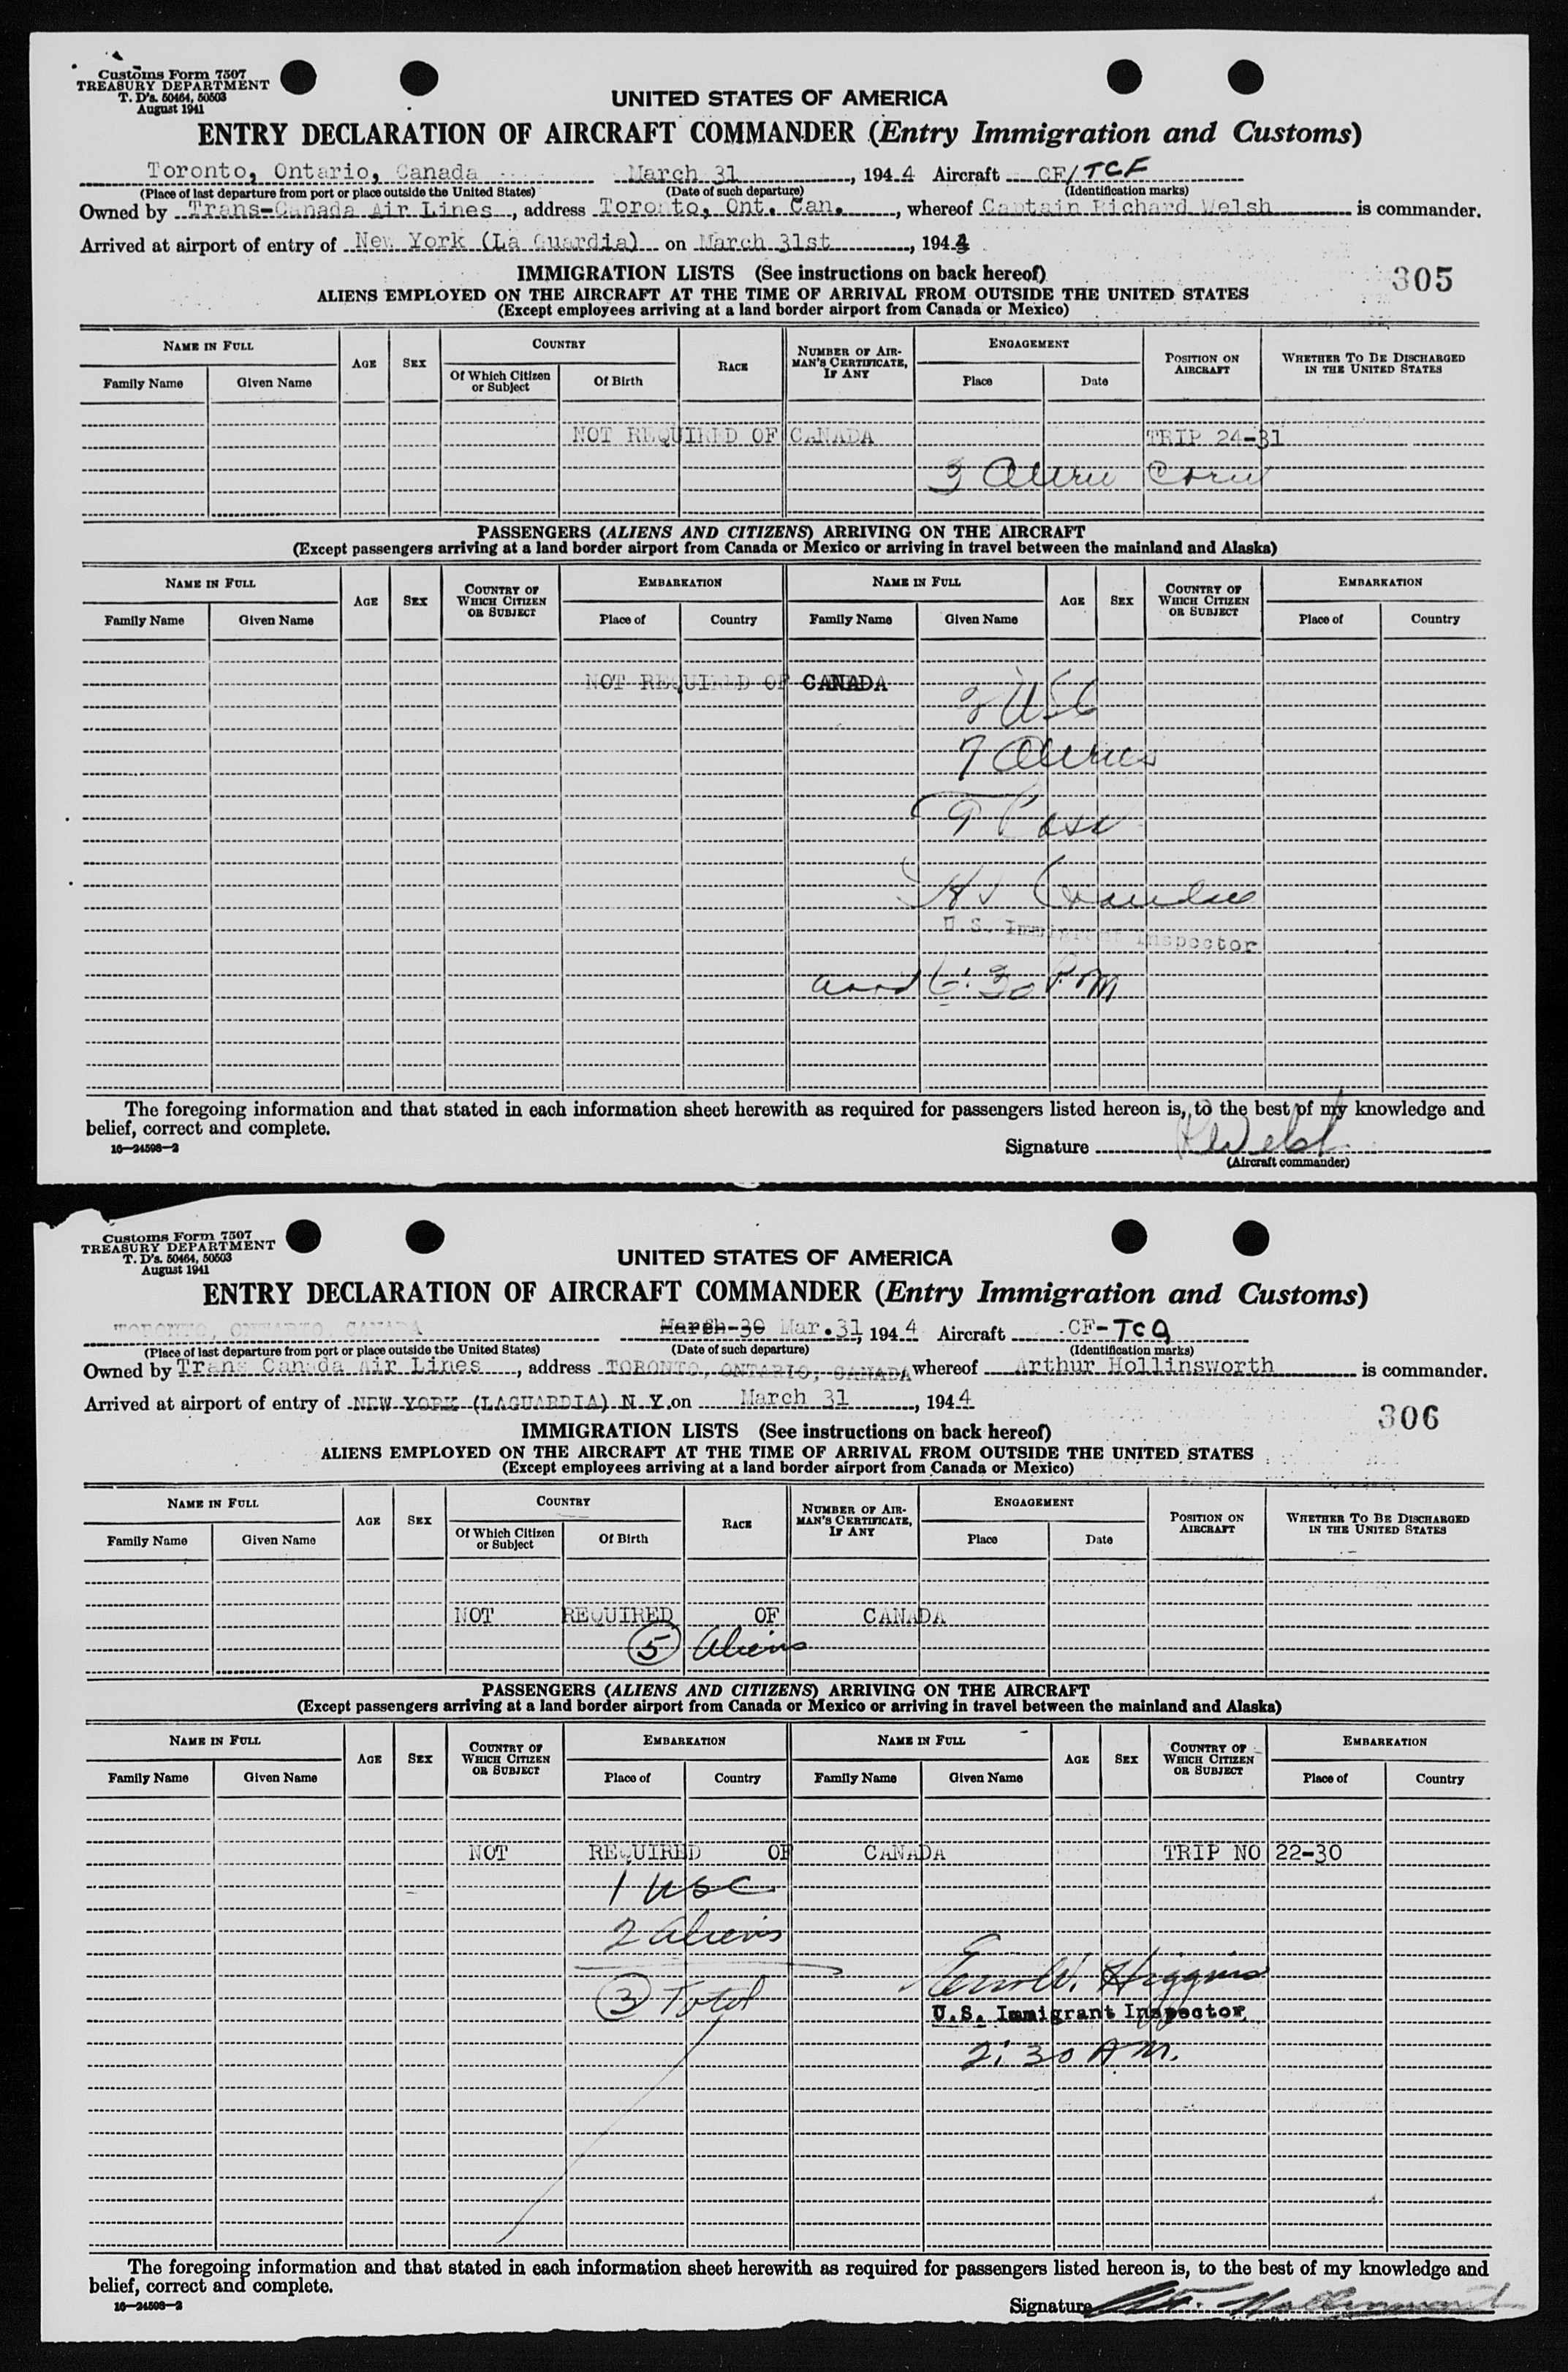 Customs Form 7507
TREASURY DEPARTMENT
T. D's. 50464, 50503
August 1941
UNITED STATES OF AMERICA
ENTRY DECLARATION OF AIRCRAFT COMMANDER (Entry Immigration and Customs)
Toronto, Ontario, Canada March 31, 1944 Aircraft CF/TCF
(Place of last departure from port or place outside the United States) (Date of such departure) (Identification marks)
Owned by Trans-Canada Air Lines, address Toronto, Ont. Can., whereof Captain Richard Welsh is commander.
Arrived at airport of entry of New York (La Guardia) on March 31st, 1944
IMMIGRATION LISTS (See instructions on back hereof)
305
ALIENS EMPLOYED ON THE AIRCRAFT AT THE TIME OF ARRIVAL FROM OUTSIDE THE UNITED STATES
(Except employees arriving at a land border airport from Canada or Mexico)
NAME IN FULL AGE SEX COUNTRY RACE NUMBER OF AIRMAN'S CERTIFICATE, IF ANY ENGAGEMENT POSITION ON AIRCRAFT WHETHER TO BE DISCHARGED IN THE UNITED STATES
Family Name Given Name Of Which Citizen or Subject Of Birth Place Date
NOT REQUIRED OF CANADA TRIP 24-31
3 Alien Crew
PASSENGERS (ALIENS AND CITIZENS) ARRIVING ON THE AIRCRAFT
(Except passengers arriving at a land border airport from Canada or Mexico or arriving in travel between the mainland and Alaska)
NAME IN FULL AGE SEX COUNTRY OF WHICH CITIZEN OR SUBJECT EMBARKATION NAME IN FULL AGE SEX COUNTRY OF WHICH CITIZEN OR SUBJECT EMBARKATION
Family Name Given Name Place of Country Family Name Given Name Place of Country
NOT REQUIRED OF CANADA
2 USC
7 Aliens
9 Pass
U.S. Immigrant Inspector
arrd 6:30 PM
The foregoing information and that stated in each information sheet herewith as required for passengers listed hereon is, to the best of my knowledge and
belief, correct and complete.
16—24598-2
Signature R Welsh
(Aircraft commander)
Customs Form 7507
TREASURY DEPARTMENT
T. D's. 50464, 50503
August 1941
UNITED STATES OF AMERICA
ENTRY DECLARATION OF AIRCRAFT COMMANDER (Entry Immigration and Customs)
TORONTO, ONTARIO, CANADA March 30 Mar. 31, 1944 Aircraft CF-TCQ
(Place of last departure from port or place outside the United States) (Date of such departure) (Identification marks)
Owned by Trans Canada Air Lines, address TORONTO, ONTARIO, CANADA whereof Arthur Hollinsworth is commander.
Arrived at airport of entry of NEW YORK (LAGUARDIA) N Y. on March 31, 1944
306
IMMIGRATION LISTS (See instructions on back hereof)
ALIENS EMPLOYED ON THE AIRCRAFT AT THE TIME OF ARRIVAL FROM OUTSIDE THE UNITED STATES
(Except employees arriving at a land border airport from Canada or Mexico)
NAME IN FULL AGE SEX COUNTRY RACE NUMBER OF AIRMAN'S CERTIFICATE, IF ANY ENGAGEMENT POSITION ON AIRCRAFT WHETHER TO BE DISCHARGED IN THE UNITED STATES
Family Name Given Name Of Which Citizen or Subject Of Birth Place Date
NOT REQUIRED OF CANADA
5 Aliens
PASSENGERS (ALIENS AND CITIZENS) ARRIVING ON THE AIRCRAFT
(Except passengers arriving at a land border airport from Canada or Mexico or arriving in travel between the mainland and Alaska)
NAME IN FULL AGE SEX COUNTRY OF WHICH CITIZEN OR SUBJECT EMBARKATION NAME IN FULL AGE SEX COUNTRY OF WHICH CITIZEN OR SUBJECT EMBARKATION
Family Name Given Name Place of Country Family Name Given Name Place of Country
NOT REQUIRED OF CANADA TRIP NO 22-30
1 USC
2 aliens
3 Total
W. Higgins
U.S. Immigrant Inspector
2:30 AM.
The foregoing information and that stated in each information sheet herewith as required for passengers listed hereon is, to the best of my knowledge and
belief, correct and complete.
16—24598-2
Signature